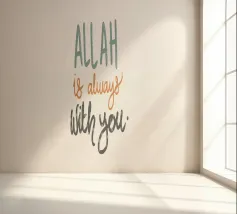 ALLAH
is always
with you.